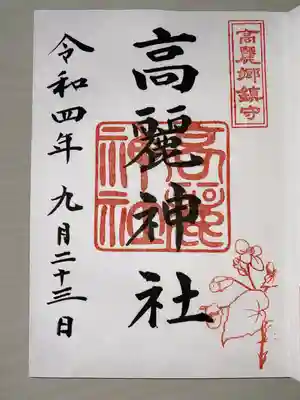 高麗郷鎮守
高麗神社
高麗神社
令和四年 九月二十三日